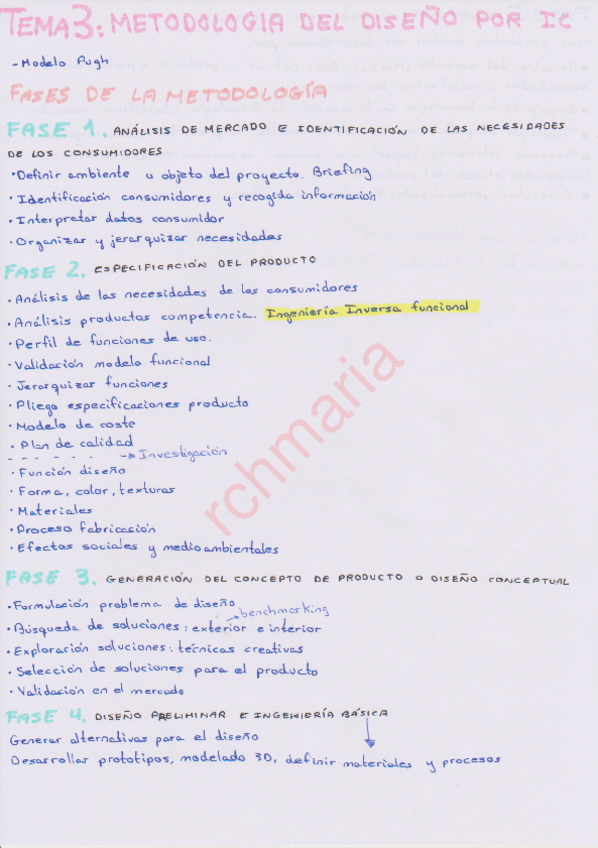 TEMA 3: METODOLOGIA DEL DISEÑO POR IC
- Modelo Pugh
FASES DE LA METODOLOGÍA
FASE 1. ANÁLISIS DE MERCADO E IDENTIFICACIÓN DE LAS NECESIDADES
DE LOS CONSUMIDORES
• Definir ambiente u objeto del proyecto. Briefing
• Identificación consumidores y recogida información
• Interpretar datos consumidor
• Organizar y jerarquizar necesidades
FASE 2. ESPECIFICACIÓN DEL PRODUCTO
• Análisis de las necesidades de los consumidores
• Análisis productos competencia. Ingeniería Inversa funcional
• Perfil de funciones de uso.
• Validación modelo funcional
• Jerarquizar funciones
• Pliego especificaciones producto
• Modelo de coste
• Plan de calidad
- - - - - - → Investigación
• Función diseño
• Forma, color, texturas
• Materiales
• Proceso fabricación
• Efectos sociales y medioambientales
FASE 3. GENERACIÓN DEL CONCEPTO DE PRODUCTO O DISEÑO CONCEPTUAL
• Formulación problema de diseño
→ benchmarking
• Búsqueda de soluciones: exterior e interior
• Exploración soluciones: técnicas creativas
• Selección de soluciones para el producto
• Validación en el mercado
FASE 4. DISEÑO PRELIMINAR E INGENIERÍA BÁSICA
Generar alternativas para el diseño
Desarrollar prototipos, modelado 3D, definir materiales y procesos
rchmaria